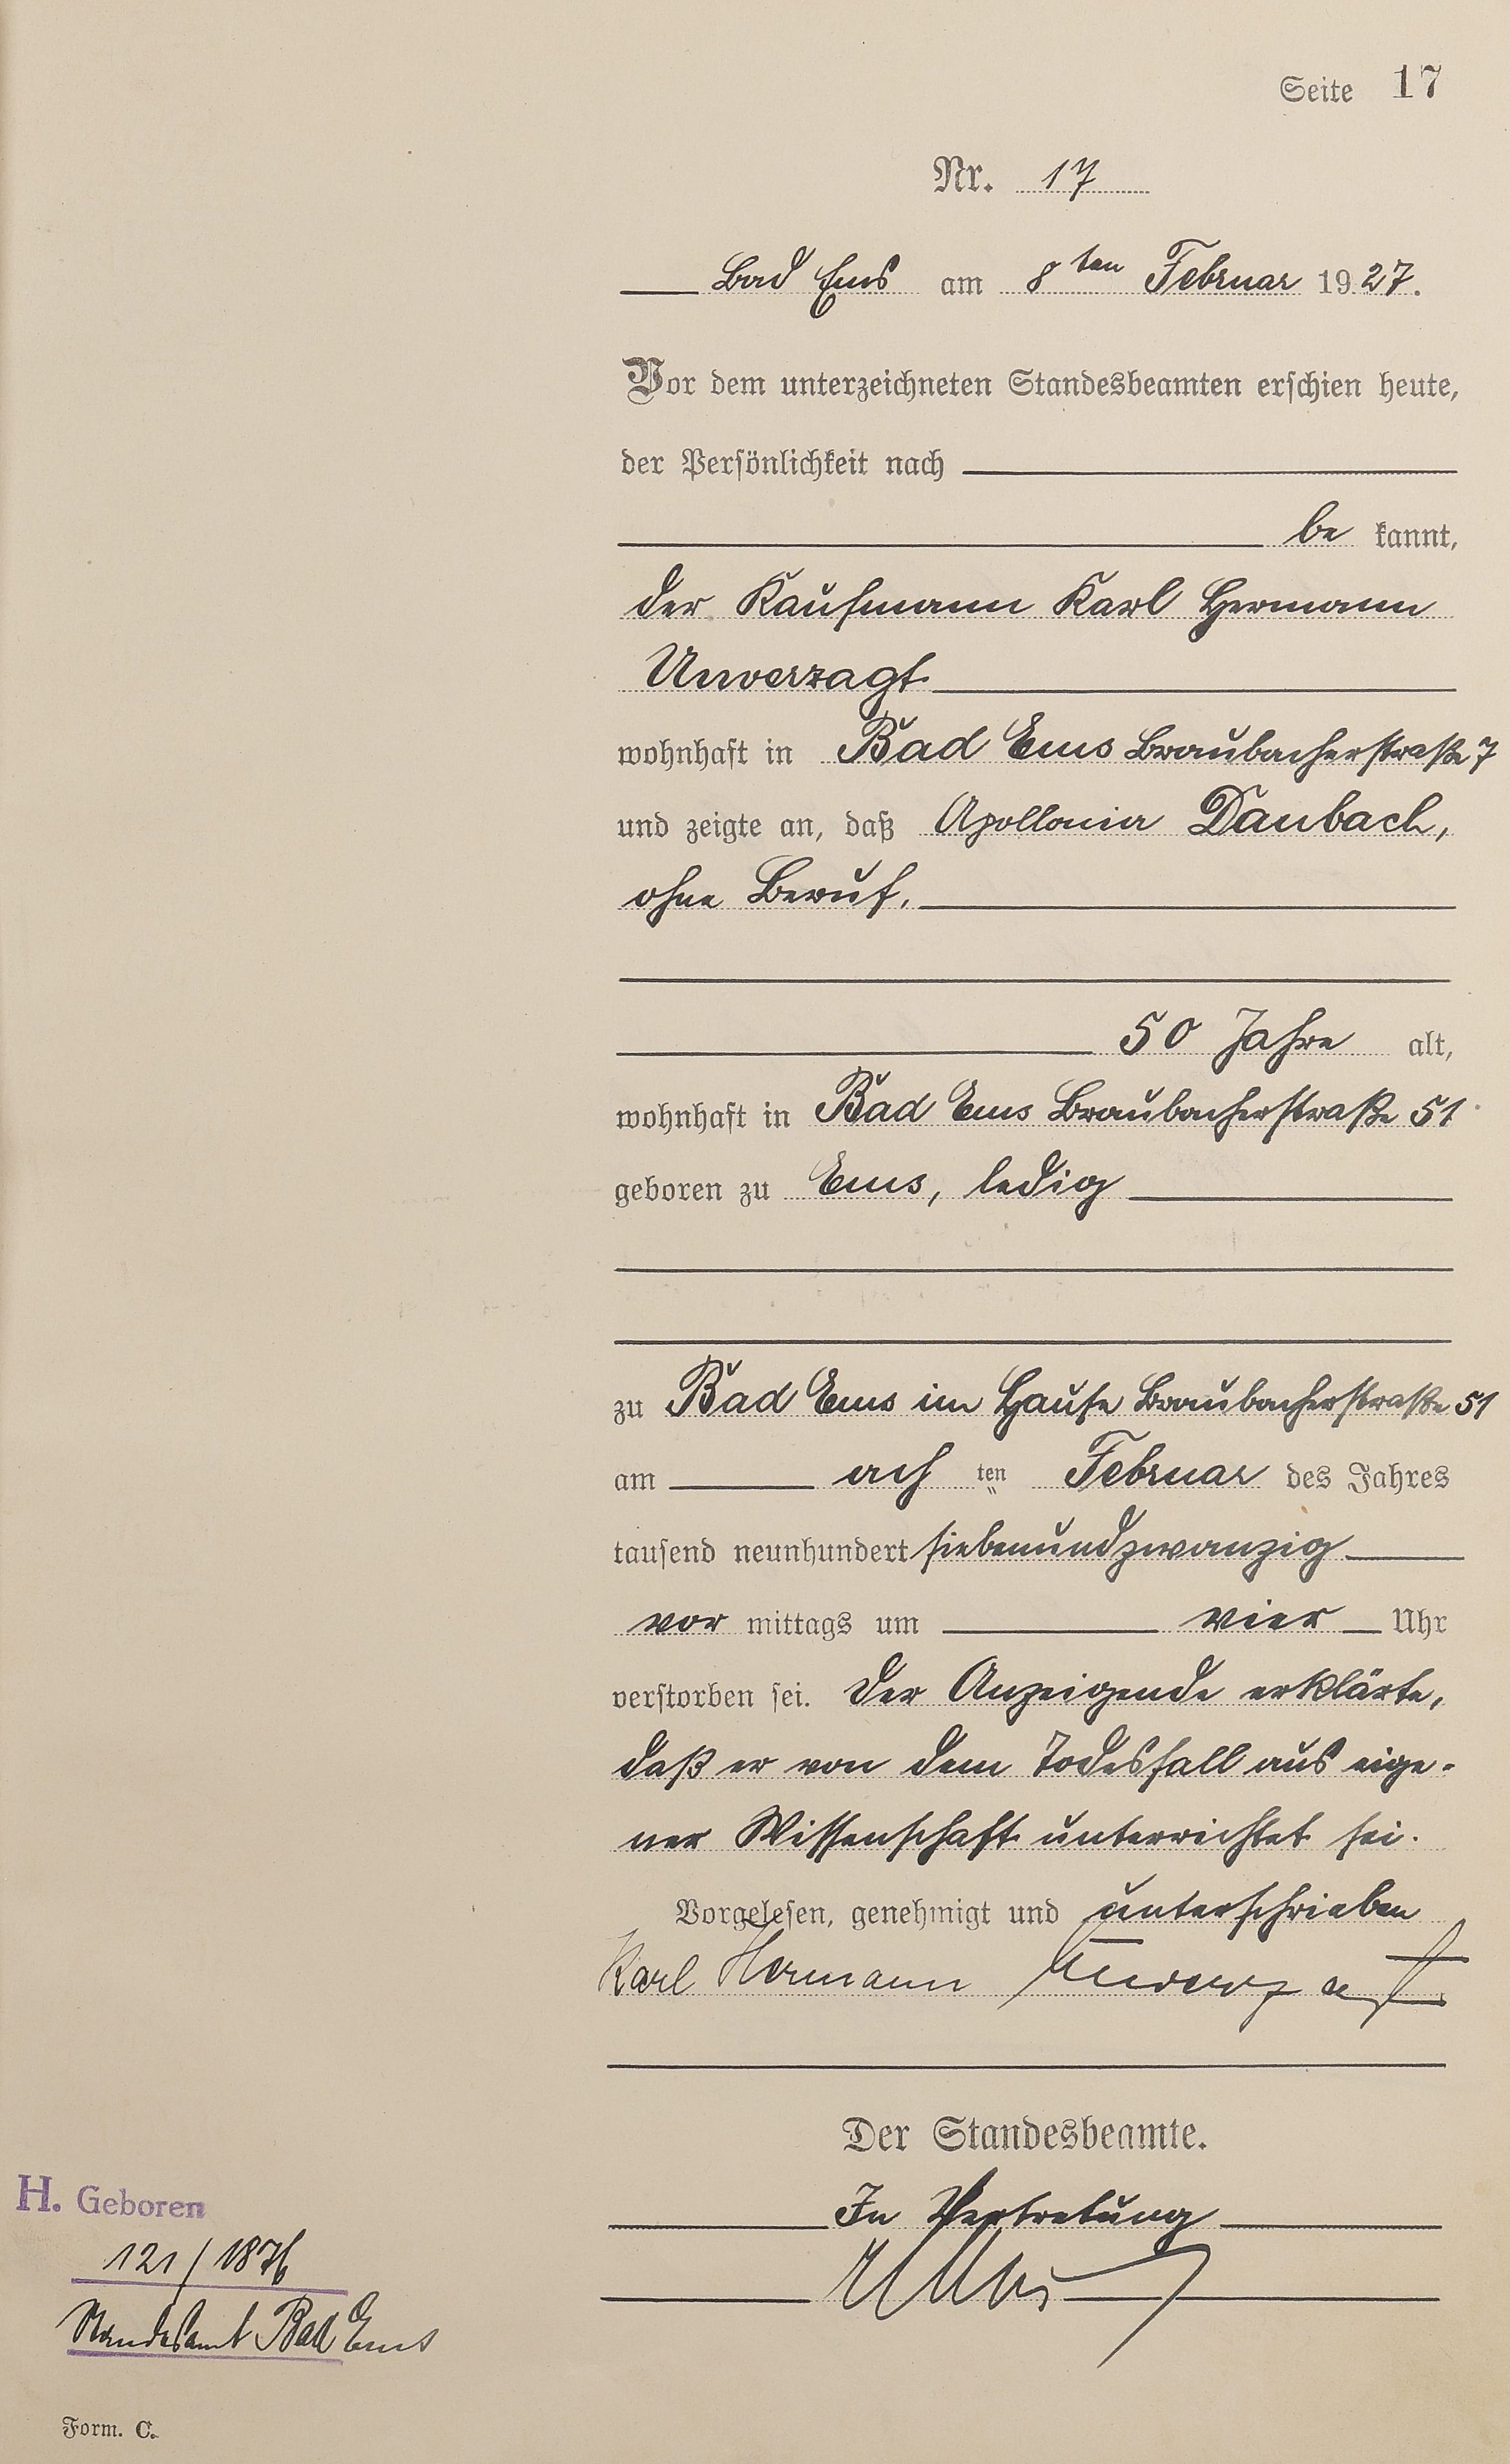 Seite 17
Nr. 17
Bad Ems am 8ten Februar 1927.
Vor dem unterzeichneten Standesbeamten erschien heute,
der Persönlichkeit nach
be kannt,
der Kaufmann Karl Hermann
Unverzagt
wohnhaft in Bad Ems Braubacherstraße 7
und zeigte an, daß Apollonia Daubach,
ohne Beruf,
50 Jahre alt,
wohnhaft in Bad Ems Braubacherstraße 51
geboren zu Ems, ledig
zu Bad Ems im Hause Braubacherstraße 51
am ach ten Februar des Jahres
tausend neunhundert siebenundzwanzig
vor mittags um vier Uhr
verstorben sei. Der Anzeigende erklärte,
daß er von dem Todesfall aus eige-
ner Wissenschaft unterrichtet sei.
Vorgelesen, genehmigt und unterschrieben
Karl Hermann Unverzagt
Der Standesbeamte.
In Vertretung
H. Geboren
121/1876
Standesamt Bad Ems
Form. C.